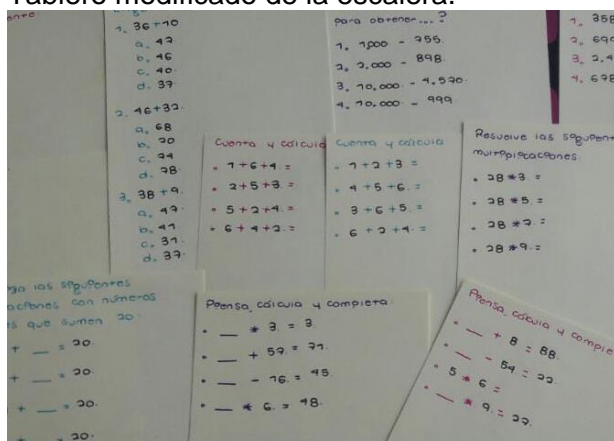 Tablero modificado de la escalera:
1. 36+10
b. 46
c. 40.
d. 37.
2. 46+32.
a. 68
d. 78.
3. 38+9.
a. 47.
b. 41
c. 31.
d. 37.
para obtener...?
1. 1,000 - 755.
2. 2,000 - 898.
3. 10,000 - 4,520.
4. 10,000 - 999
1. 358
2.
3. 2,4
4. 678
Cuenta y calcula
• 1+6+4. =
• 2+5+3. =
• 5+2+4. =
• 6+4+2. =
Cuenta y calcula
• 1+2+3 =
• 4+5+6. =
• 3+6+5. =
• 6+2+4. =
Resuelve las
multiplicaciones.
• 28 * 3. =
• 28 * 5. =
• 28 * 2. =
• 28 * 9. =
las siguientes
con números
que sumen 20.
+ __ = 20.
+ __ = 20.
+ __ = 20.
+ __ = 20.
Piensa, calcula y completa.
• __ * 3. = 3.
• __ + 52. = 71.
• __ - 16. = 45.
• __ * 6. = 48.
Piensa, calcula y comple
• __ + 8 = 88.
• __ - 54 = 22.
• 5 * 6 =
• __ * 9. = 27.